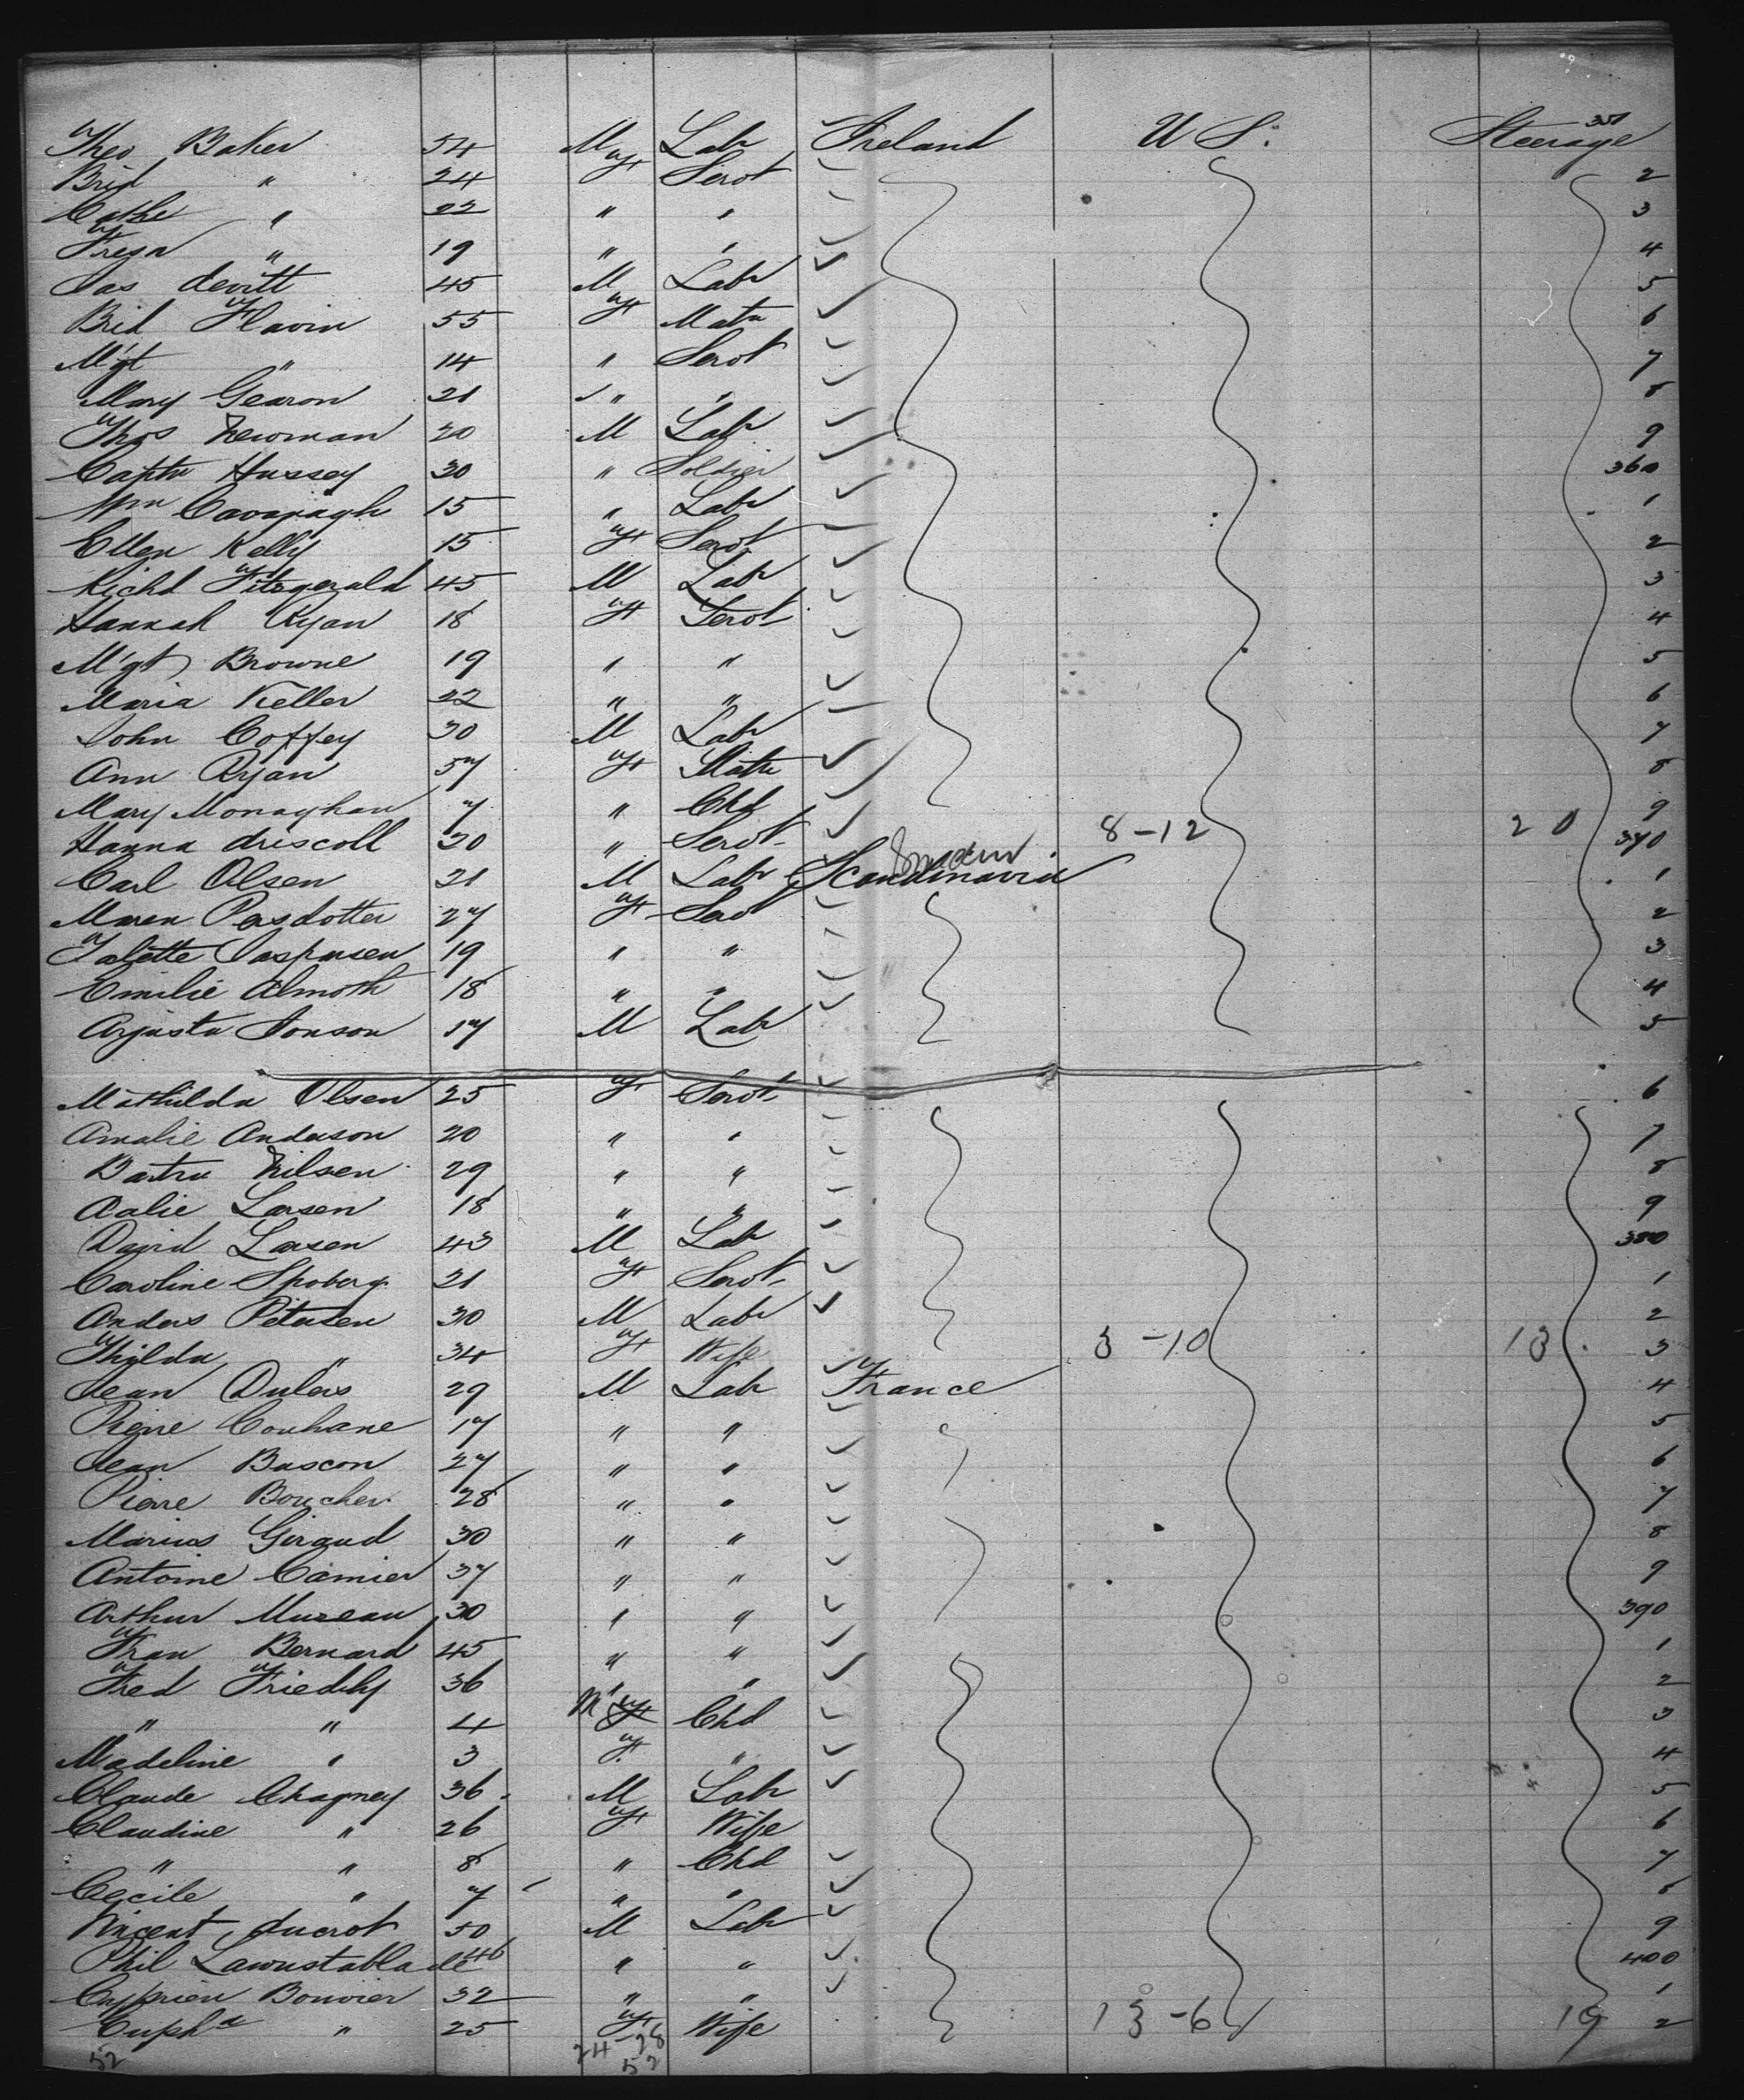 Theo Baker 54 M Labr Ireland U S. Steerage 351
Brid " 24 F Servt 2
Cathe " 22 " " 3
Tresa " 19 " " 4
Jas devitt 45 M Labr 5
Brid Flavin 55 F Matn 6
M'gt " 14 " Servt 7
Mary Gearon 21 " " 8
Thos Newman 20 M Labr 9
Captn Hussey 30 " Soldier 360
Wm Cavanagh 15 " Labr 1
Ellen Kelly 15 F Servt 2
Richd Fitzgerald 45 M Labr 3
Hannah Ryan 18 F Servt 4
M'gt Browne 19 " " 5
Maria Keller 22 " " 6
John Coffey 30 M Labr 7
Ann Ryan 57 F Matn 8
Mary Monaghan 7 " Chd 9
Hanna driscoll 30 " Servt 8-12 20 370
Carl Olsen 21 M Labr Scandinavia Sweden 1
Maren Persdotter 27 F Servt 2
Talette Jaspersen 19 " " 3
Emilie Almoth 18 " " 4
Arjusta Jonson 17 M Labr 5
Mathilda Olsen 25 F Servt 6
Amalie Anderson 20 " " 7
Nilsen 29 " " 8
Aalie Larsen 18 " " 9
David Larsen 43 M Labr 380
Caroline Spoberg 21 F Servt 1
Anders Petersen 30 M Labr 2
Thilda " 34 F Wife 3-10 13 3
Jean Dulers 29 M Labr France 4
Pierre Couhane 17 " " 5
Jean Bascon 27 " " 6
Pierre Boucher 28 " " 7
Marius Giraud 30 " " 8
Antoine Camier 37 " " 9
Arthur Mureau 30 " " 390
Fran Bernard 45 " " 1
Fred Friedely 36 " " 2
" " 4 M F Chd 3
Madeline " 3 F " 4
Claude Chagney 36 M Labr 5
Claudine " 26 F Wife 6
" " 8 " Chd 7
Cecile " 7 " " 8
Vincent ducrot 50 M Labr 9
Phil Lawustablade 46 " " 400
Cyprien Bouvier 32 " " 1
Cuph a " 25 F Wife 13-6 19 2
52 24-28
52